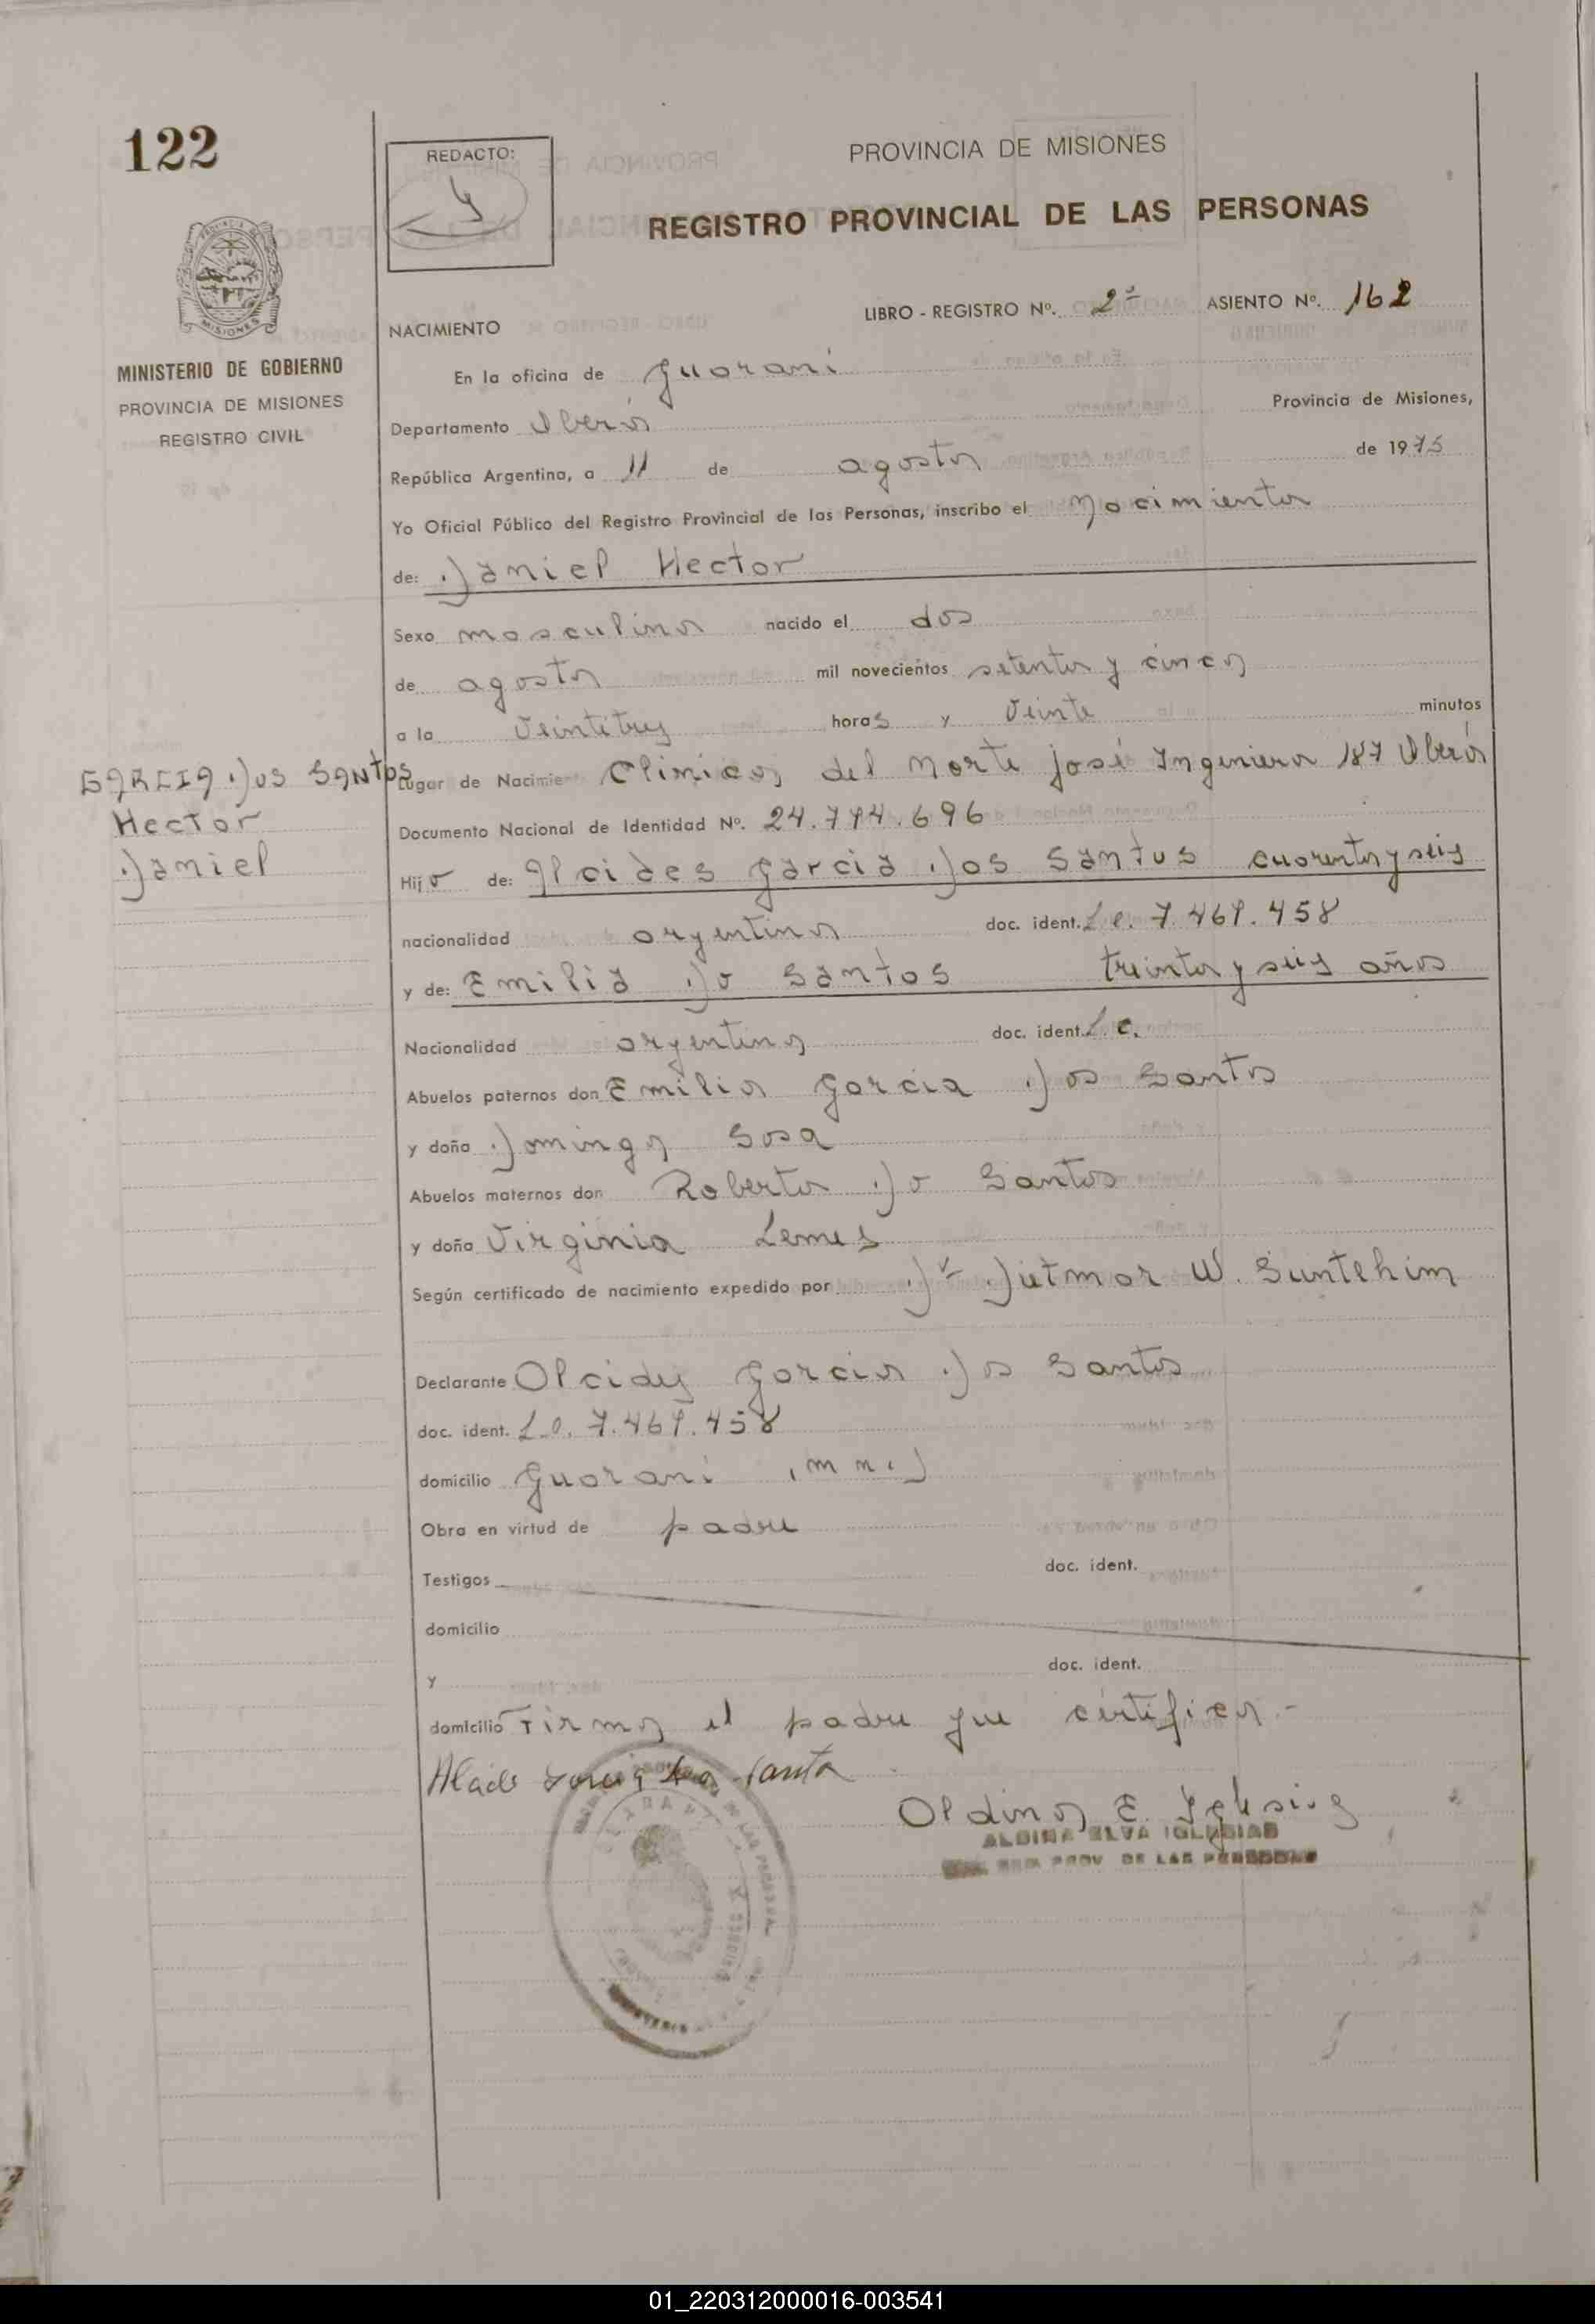 122
REDACTO:
PROVINCIA DE MISIONES
REGISTRO PROVINCIAL DE LAS PERSONAS
LIBRO - REGISTRO Nº. 2º ASIENTO Nº. 162
MISIONES
MINISTERIO DE GOBIERNO
PROVINCIA DE MISIONES
REGISTRO CIVIL
NACIMIENTO
En la oficina de Guarani
Departamento Oberá Provincia de Misiones,
República Argentina, a 11 de agosto de 1975
Yo Oficial Público del Registro Provincial de las Personas, inscribo el Nacimiento
de: Daniel Hector
Sexo masculino nacido el dos
de agosto mil novecientos setenta y cinco
a la veintitres horas y veinte minutos
GARCIA DOS SANTOS
Hector
Daniel
Lugar de Nacimie Clinica del Norte José Ingeniero 187 Oberá
Documento Nacional de Identidad Nº. 24.794.696
Hijo de: Alcides Garcia Dos Santos cuarenta y seis
nacionalidad argentina doc. ident. L.e. 7.469.458
y de: Emilia Do Santos treinta y seis años
Nacionalidad argentina doc. ident. L.c.
Abuelos paternos don Emilio Garcia Dos Santos
y doña Dominga Sosa
Abuelos maternos don Roberto Do Santos
y doña Virginia Lemes
Según certificado de nacimiento expedido por Dr Dietmar W.
Declarante Alcides Garcia Dos Santos
doc. ident. L.e. 7.469.458
domicilio Guarani (mnes)
Obra en virtud de padre
Testigos doc. ident.
domicilio
y doc. ident.
domicilio Firma el padre que certifica.-
Santo
Albina E. Iglesias
ALBINA ELVA IGLESIAS
PROV DE LAS PERSONAS
01_220312000016-003541